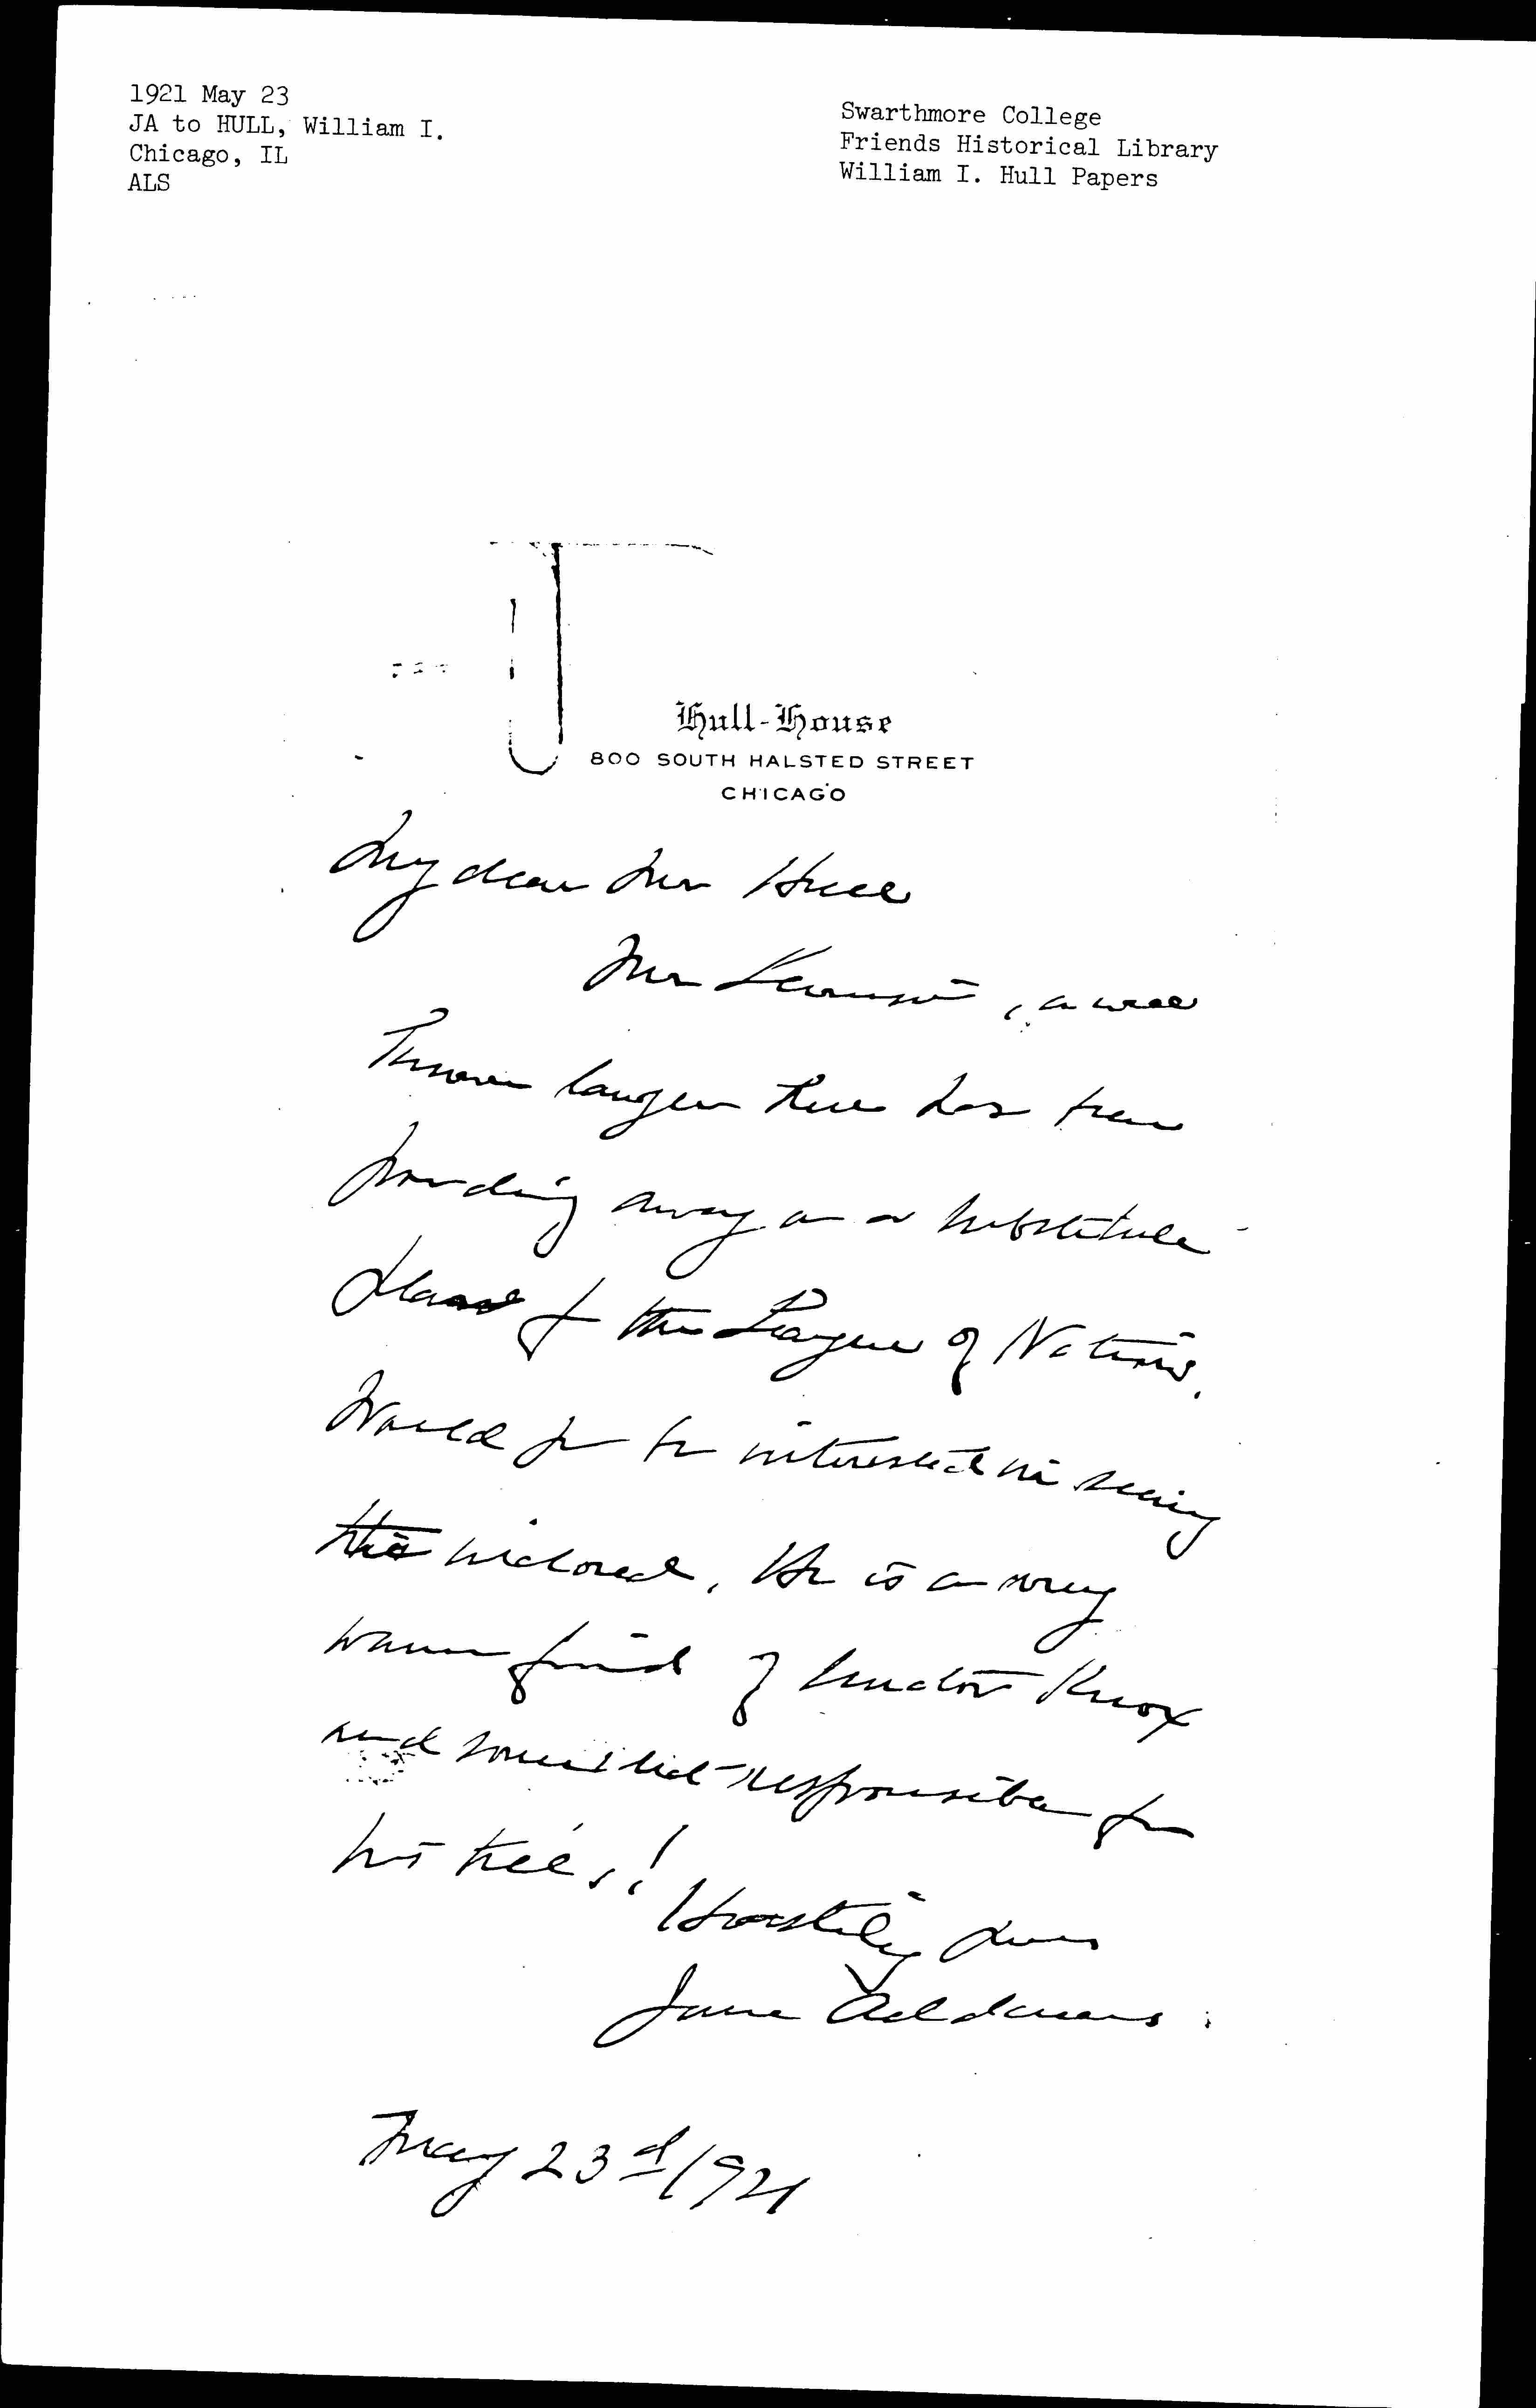 1921 May 23
JA to HULL, William I.
Chicago, IL
ALS
Swarthmore College
Friends Historical Library
William I. Hull Papers
Hull-House
800 SOUTH HALSTED STREET
CHICAGO
My dear Mr Hull
Mr Levinson, a well
known lawyer here has been
pounding away on a substitute
for the League of Nations.
Would you be interested in seeing
the inclosed. He is a very
warm friend of Senator Knox
and somewhat responsible for
his bill,!
Hastily yours
Jane Addams.
May 23d 1921